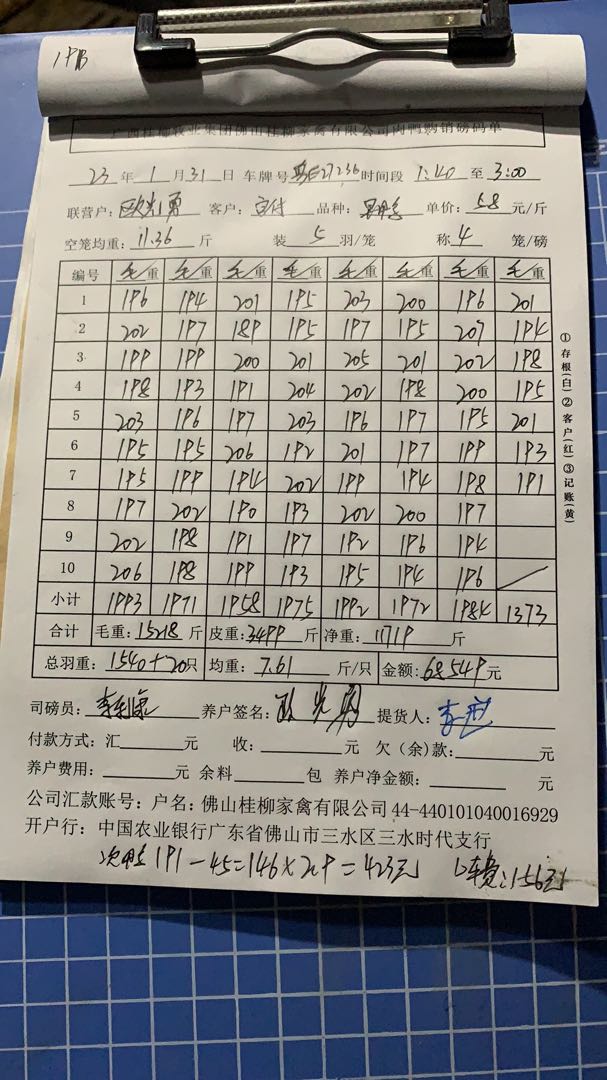 198
广西桂柳牧业集团佛山桂柳家禽有限公司肉鸭购销磅码单
23 年 1 月 31 日 车牌号 27236 时间段 1:40 至 3:00
联营户: 欧光勇 客户: 品种: 单价: 5.8 元/斤
空笼均重: 11.36 斤 装 5 羽/笼 称 4 笼/磅
编号 毛重 毛重 毛重 毛重 毛重 毛重 毛重 毛重
1 196 194 201 195 203 200 196 201
2 202 197 189 195 197 195 207 194
3 199 199 200 201 205 201 202 198
4 198 193 191 204 202 198 200 195
5 203 196 197 203 196 197 195 201
6 195 195 206 192 201 197 199 193
7 195 199 194 202 199 194 198 191
8 197 202 190 193 202 200 197
9 202 198 191 197 192 196 194
10 206 198 199 193 195 194 196
小计 1993 1971 1958 1975 1992 1972 1984 1373
合计 毛重: 15218 斤 皮重: 3499 斤 净重: 11719 斤
总羽重: 1540+20 只 均重: 7.61 斤/只 金额: 68549 元
司磅员: 养户签名: 欧光勇 提货人:
付款方式: 汇 元 收: 元 欠(余)款: 元
养户费用: 元 余料 包 养户净金额: 元
公司汇款账号: 户名: 佛山桂柳家禽有限公司 44-440101040016929
开户行: 中国农业银行广东省佛山市三水区三水时代支行
次鸭 191-45=146×2.9=423元 车费:156元
①存根(白)②客户(红)③记账(黄)